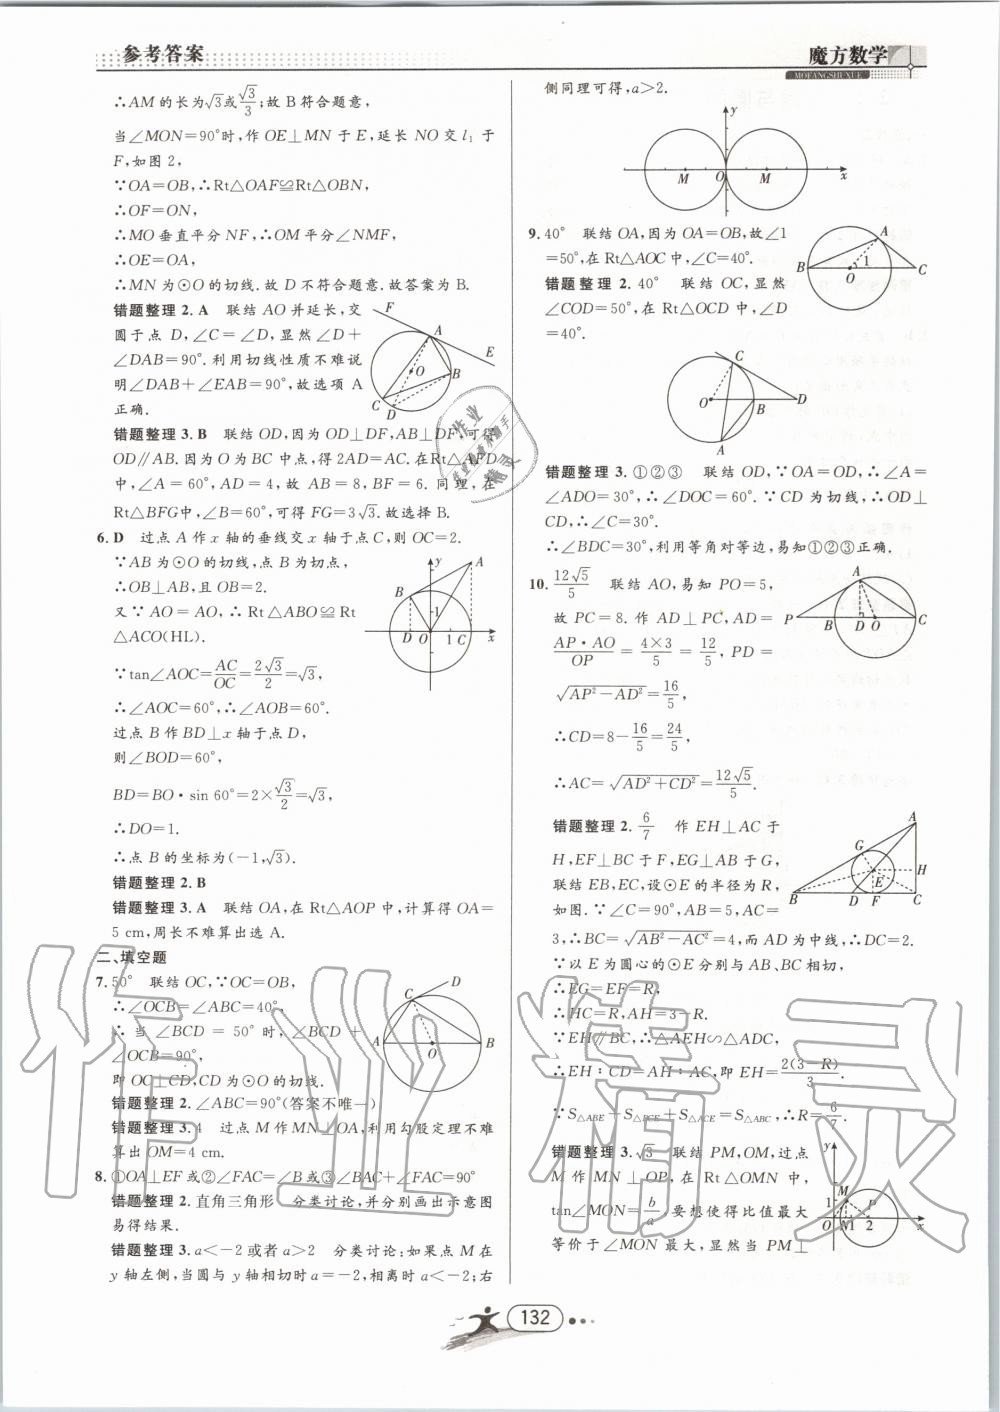 参考答案
魔方数学
MOFANGSHUXUE
∴AM的长为√3或√3/3;故B符合题意,
当∠MON=90°时,作OE⊥MN于E,延长NO交l₁于
F,如图2,
∵OA=OB,∴Rt△OAF≌Rt△OBN,
∴OF=ON,
∴MO垂直平分NF,∴OM平分∠NMF,
∴OE=OA,
∴MN为⊙O的切线.故D不符合题意.故答案为B.
错题整理2.A 联结AO并延长,交
圆于点D,∠C=∠D,显然∠D+
∠DAB=90°.利用切线性质不难说
明∠DAB+∠EAB=90°,故选项A
正确.
F
A
E
O
B
C
D
错题整理3.B 联结OD,因为OD⊥DF,AB⊥DF,可得
OD∥AB.因为O为BC中点,得2AD=AC.在Rt△AFD
中,∠A=60°,AD=4,故AB=8,BF=6.同理,在
Rt△BFG中,∠B=60°,可得FG=3√3.故选择B.
6.D 过点A作x轴的垂线交x轴于点C,则OC=2.
∵AB为⊙O的切线,点B为切点,
∴OB⊥AB,且OB=2.
又∵AO=AO,∴Rt△ABO≌Rt
△ACO(HL).
∵tan∠AOC=AC/OC=2√3/2=√3,
∴∠AOC=60°,∴∠AOB=60°.
过点B作BD⊥x轴于点D,
则∠BOD=60°,
BD=BO·sin 60°=2×√3/2=√3,
∴DO=1.
∴点B的坐标为(-1,√3).
y
A
B
1
D O 1 C x
错题整理2.B
错题整理3.A 联结OA,在Rt△AOP中,计算得OA=
5 cm,周长不难算出选A.
二、填空题
7.50° 联结OC,∵OC=OB,
∴∠OCB=∠ABC=40°,
∴当∠BCD=50°时,∠BCD+
∠OCB=90°,
即OC⊥CD,CD为⊙O的切线.
D
C
A
O
B
错题整理2.∠ABC=90°(答案不唯一)
错题整理3.4 过点M作MN⊥OA,利用勾股定理不难
算出OM=4 cm.
8.①OA⊥EF或②∠FAC=∠B或③∠BAC+∠FAC=90°
错题整理2.直角三角形 分类讨论,并分别画出示意图
易得结果.
错题整理3.a<-2或者a>2 分类讨论:如果点M在
y轴左侧,当圆与y轴相切时a=-2,相离时a<-2;右
侧同理可得,a>2.
y
M O M x
9.40° 联结OA,因为OA=OB,故∠1
=50°,在Rt△AOC中,∠C=40°.
错题整理2.40° 联结OC,显然
∠COD=50°,在Rt△OCD中,∠D
=40°.
A
B 1 C
O
C
O
B
D
A
错题整理3.①②③ 联结OD,∵OA=OD,∴∠A=
∠ADO=30°,∴∠DOC=60°.∵CD为切线,∴OD⊥
CD,∴∠C=30°.
∴∠BDC=30°,利用等角对等边,易知①②③正确.
10.12√5/5 联结AO,易知PO=5,
故PC=8.作AD⊥PC,AD=
AP·AO/OP=4×3/5=12/5,PD=
√(AP²-AD²)=16/5,
∴CD=8-16/5=24/5,
∴AC=√(AD²+CD²)=12√5/5.
A
P B D O C
错题整理2.6/7 作EH⊥AC于
H,EF⊥BC于F,EG⊥AB于G,
联结EB,EC,设⊙E的半径为R,
如图.∵∠C=90°,AB=5,AC=
3,∴BC=√(AB²-AC²)=4,而AD为中线,∴DC=2.
∵以E为圆心的⊙E分别与AB、BC相切,
∴EG=EF=R,
∴HC=R,AH=3-R.
∵EH∥BC,∴△AEH∽△ADC,
∴EH∶CD=AH∶AC,即EH=2(3-R)/3.
∵S△ABE+S△BCE+S△ACE=S△ABC,∴R=6/7.
A
G
H
E
B D F C
错题整理3.√3 联结PM,OM,过点
M作MN⊥OP,在Rt△OMN中,
tan∠MON=b/a,要想使得比值最大
等价于∠MON最大,显然当PM⊥
y
M
1
P
O N 1 2 x
132
作业精灵